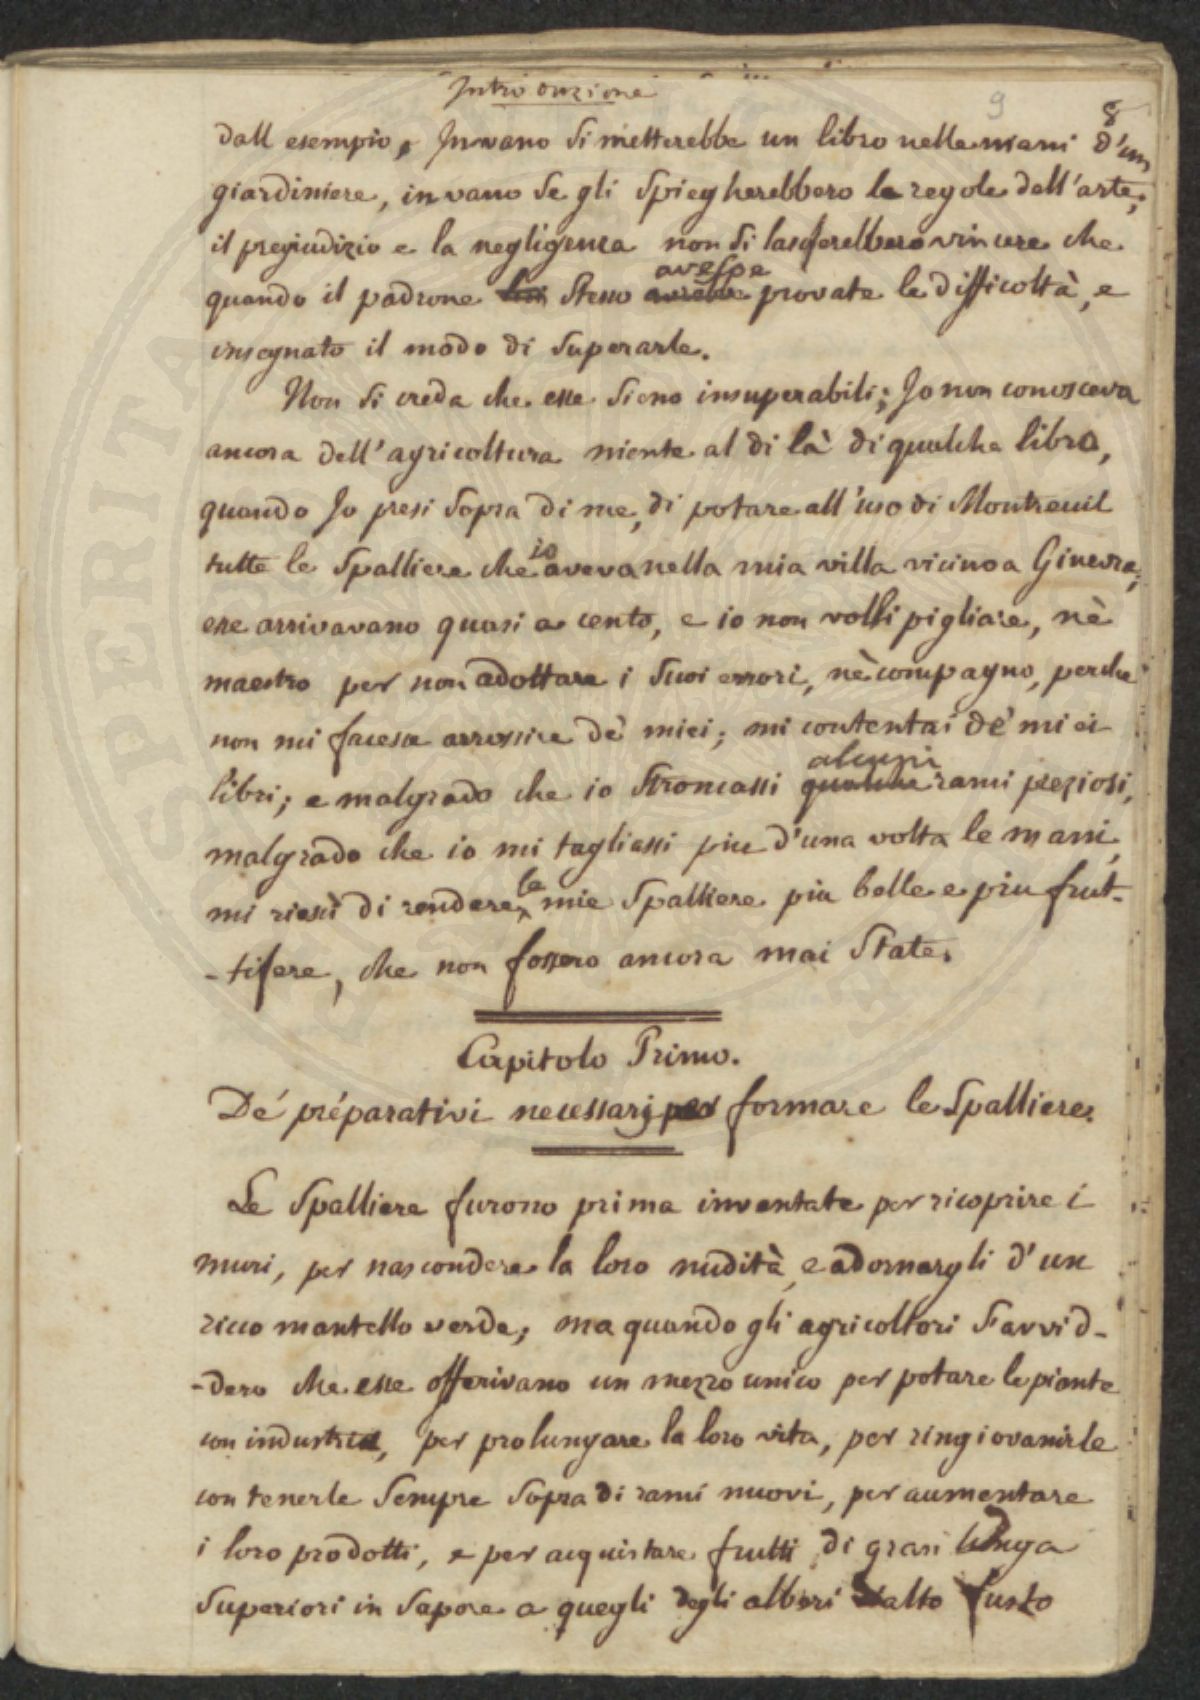 Introduzione
9
8
dall esempio, Invano si metterebbe un libro nelle mani d'un
giardiniere, invano se gli spiegherebbero le regole dell'arte;
il pregiudizio e la negligenza non si lascierebbero vincere che
avesse
quando il padrone lui stesso avrebbe provate le difficoltà, e
insegnato il modo di superarle.
Non si creda che esse sieno insuperabili; Io non conosceva
ancora dell'agricoltura niente al di là di qualche libro,
quando Io presi sopra di me, di potare all'uso di Montreuil
tutte le spalliere che io aveva nella mia villa vicino a Ginevra;
esse arrivavano quasi a cento, e io non volli pigliare, nè
maestro per non adottare i suoi errori, nè compagno, perche
non mi facesse arrossire de' miei; mi contentai de' miei
alcuni
libri; e malgrado che io stroncassi qualche rami preziosi,
malgrado che io mi tagliassi piu d'una volta le mani,
mi riescì di rendere le mie spalliere piu belle e piu frut-
-tifere, che non fossero ancora mai state.
Capitolo Primo.
De' préparativi necessarj per formare le Spalliere.
Le Spalliere furono prima inventate per ricoprire i
muri, per nascondere la loro nudità, e adornargli d'un
ricco mantello verde; ma quando gli agricoltori s'avvid-
-dero che esse offerivano un mezzo unico per potare le piante
con industria, per prolungare la loro vita, per ringiovanirle
con tenerle sempre sopra di rami nuovi, per aumentare
i loro prodotti, e per acquistare frutti di gran lunga
superiori in sapore a quegli degli alberi d'alto fusto